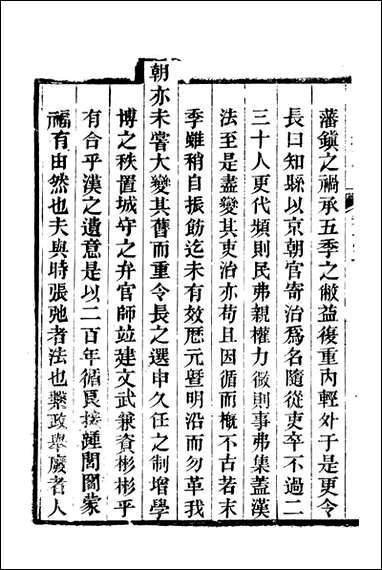 藩鎭之禍承五季之敝益後重内輕外于是更令
長曰知縣以京朝官寄治爲名隨從吏卒不過二
三十人更代頻則民弗親權力微則事弗集蓋漢
法至是盡變其吏治亦苟且因循而概不古若末
季雖稍自振飭迄未有效厯元曁明沿而勿革我
朝亦未嘗大變其舊而重令長之選申久任之制增學
博之秩置城守之弁官師竝建文武兼資彬彬乎
有合乎漢之遺意是以二百年循良接踵閭閻蒙
福有由然也夫與時張弛者法也藥政舉廢者人